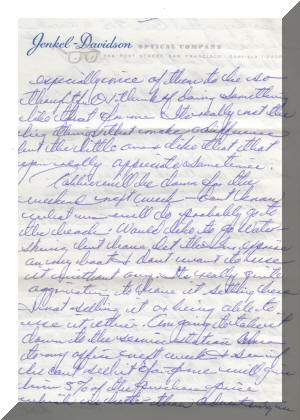 Jenkel-Davidson OPTICAL COMPANY
366 POST STREET, SAN FRANCISCO
especially nice of them to be so
thoughtful & think of doing something
like that for me. It's really not the
big things that make a difference
but the little ones like that that
you really appreciate sometimes.
will be down for the
weekend next week - don't know
what we will do probably go to
the beach. Would like to go water
skiing but have not the
on my boat & don't want to use
it without any. It's really quite
aggravating to have it sitting there
& not selling it or being able to
use it either. Am going to take it
down to the service station
to my office next week & see if
he can sell it for me will give
him 5% of the purchase price